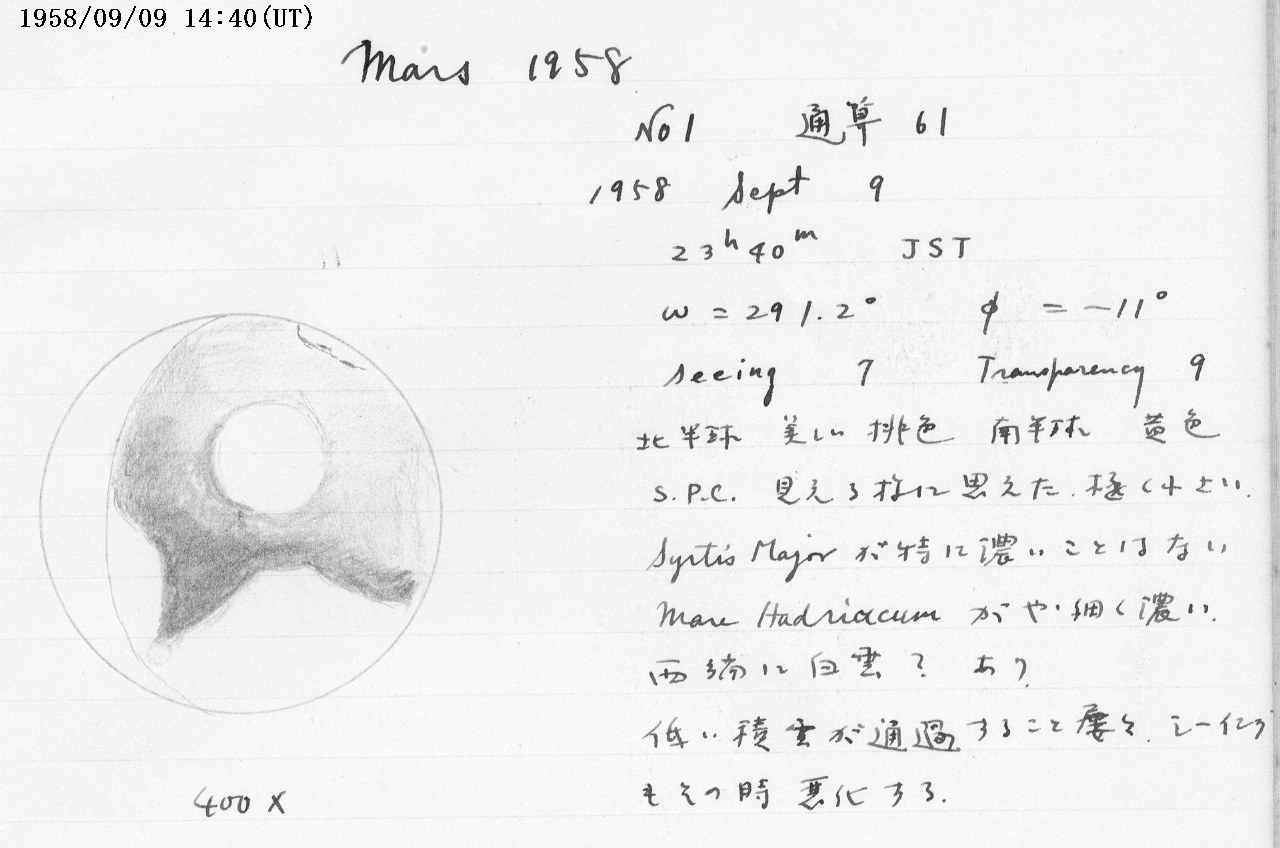 1958/09/09 14:40(UT)
Mars 1958
No 1 通算 61
1958 Sept 9
23h 40m JST
ω = 291.2° φ = -11°
Seeing 7 Transparency 9
北半球 美しい 桃色 南半球 黄色
S.P.C. 見える様に思えた. 極く小さい.
Syrtis Major が特に濃いことはない
Mare Hadriacum がやゝ細く濃い.
西端に白雲? あり
低い積雲が通過すること屡々. シーイング
もその時悪化する.
400 X